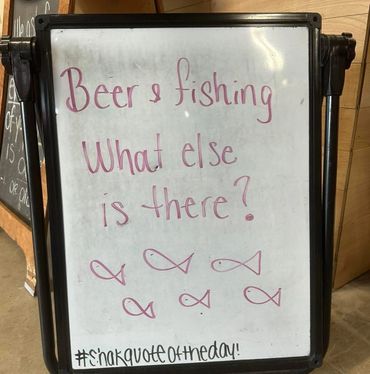 Beer & fishing
What else
is there?
#shakquoteoftheday!